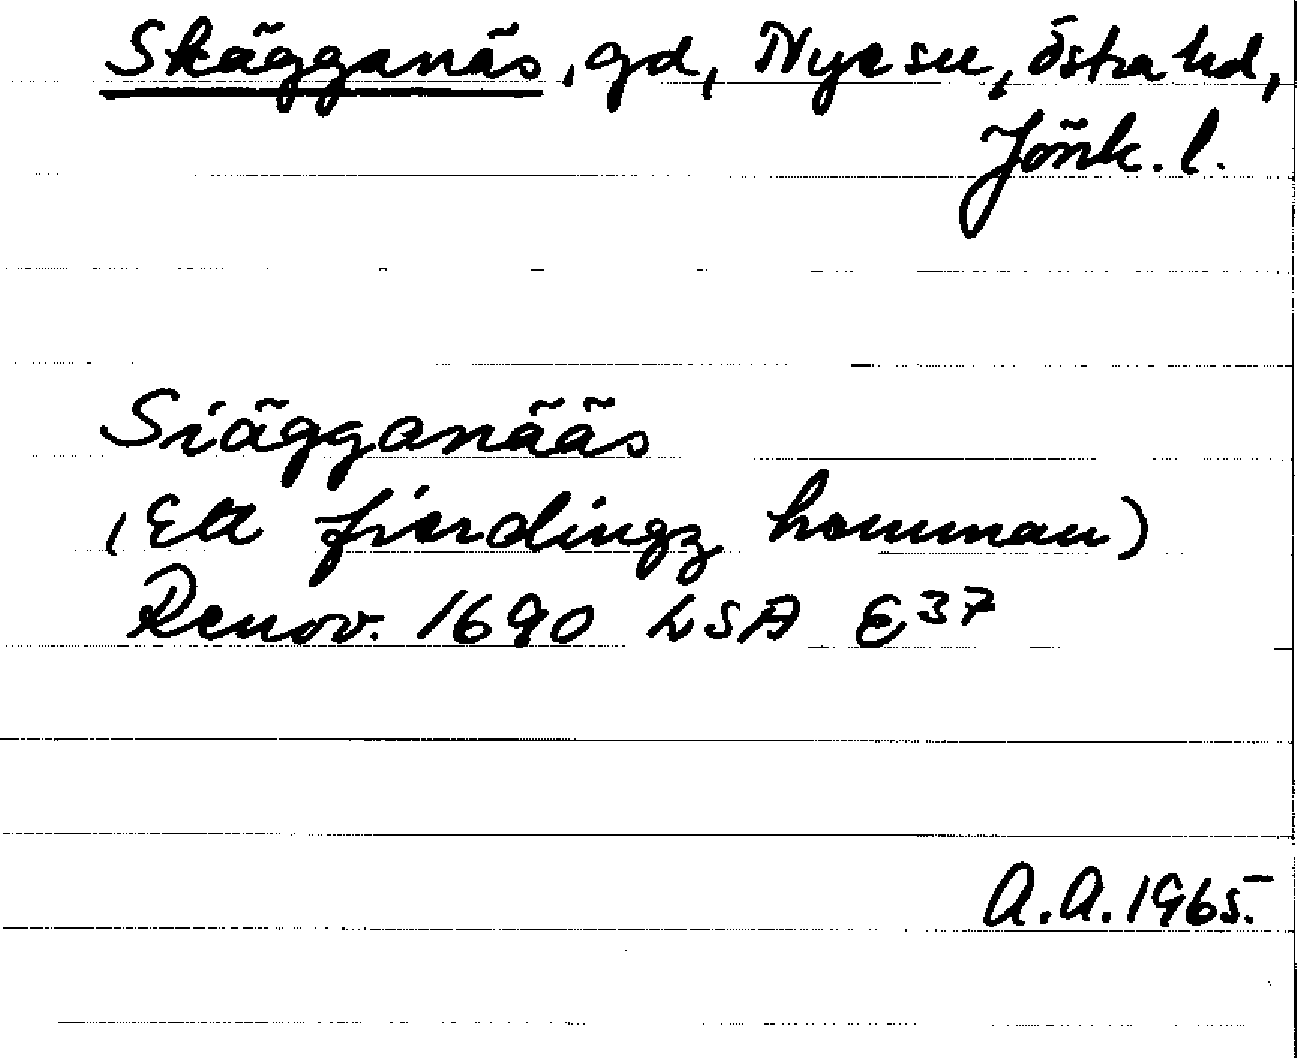 Skägganäs, gd, Nye sn, Östra hd,
Jönk. l.
Siägganääs
(Ett fierdingz hemman)
Renov. 1690 LSA E37
A.A. 1965.